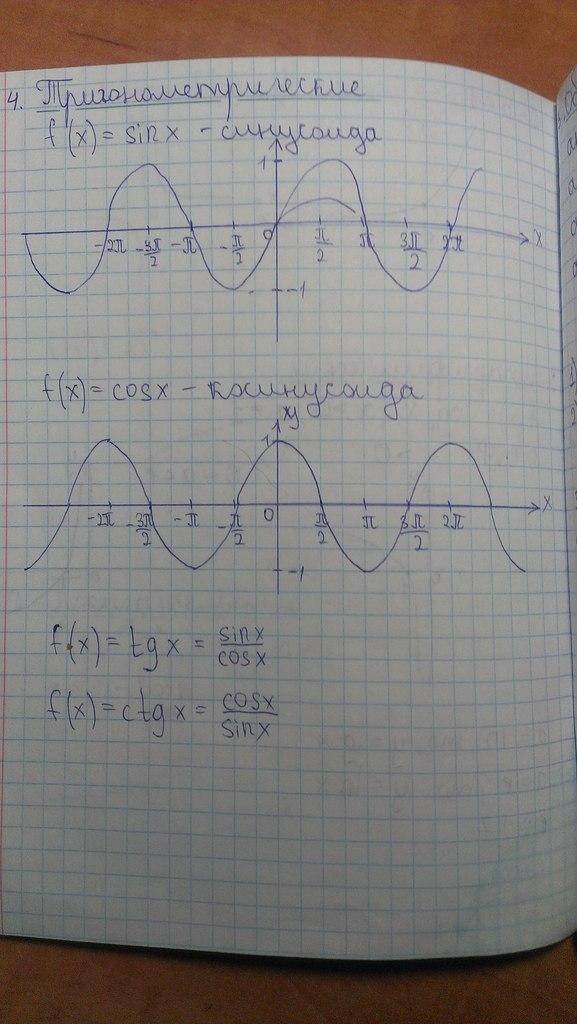 4. Тригонометрические
f(x) = sinx - синусоида
1
-2π -3π/2 -π -π/2 0 π/2 π 3π/2 2π x
-1
f(x) = cosx - косинусоида
y
1
-2π -3π/2 -π -π/2 0 π/2 π 3π/2 2π x
-1
f(x) = tg x = sinx/cosx
f(x) = ctg x = cosx/sinx